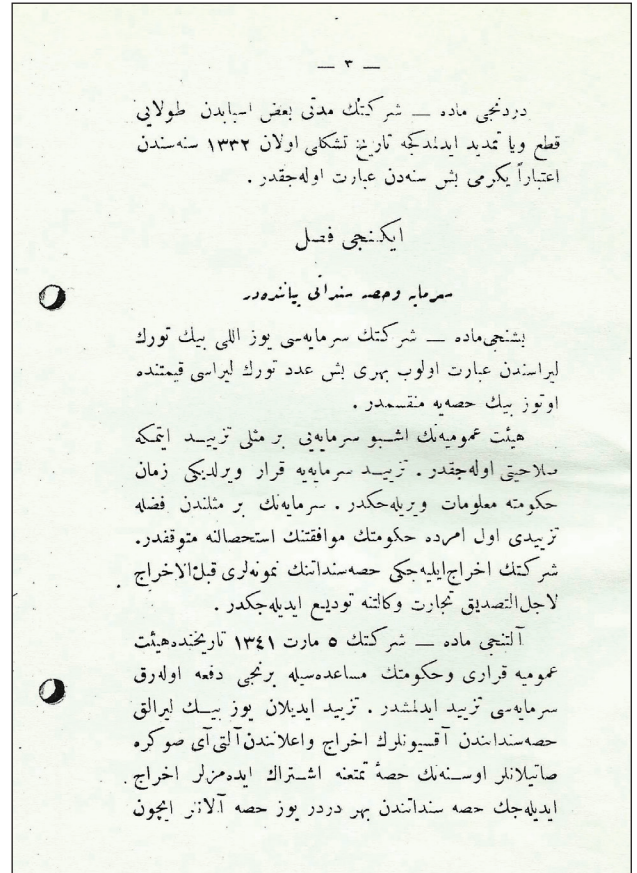 — ٣ —
دردنجى ماده — شركتك مدتى بعض اسبابدن طولايى
قطع ويا تمديد ايدلمدكجه تاريخ تشكلى اولان ١٣٣٢ سنه‌سندن
اعتباراً يكرمى بش سنه‌دن عبارت اوله‌جقدر .
ايكنجى فصل
سرمايه وحصه سنداتى بياننده‌در
بشنجى ماده — شركتك سرمايه‌سى يوز اللى بيك تورك
ليراسندن عبارت اولوب بهرى بش عدد تورك ليراسى قيمتنده
اوتوز بيك حصه‌يه منقسمدر .
هيئت عموميه‌نك اشبو سرمايه‌يى بر مثلى تزييد ايتمكه
صلاحيتى اوله‌جقدر . تزييد سرمايه‌يه قرار ويرلديكى زمان
حكومته معلومات ويريله‌جكدر . سرمايه‌نك بر مثلندن فضله
تزييدى اول امرده حكومتك موافقتنك استحصالنه متوقفدر.
شركتك اخراج ايليه‌جكى حصه‌سنداتنك نمونه‌لرى قبل‌الاخراج
لاجل‌التصديق تجارت وكالتنه توديع ايديله‌جكدر .
آلتنجى ماده — شركتك ٥ مارت ١٣٤١ تاريخنده هيئت
عموميه قرارى وحكومتك مساعده‌سيله برنجى دفعه اوله‌رق
سرمايه‌سى تزييد ايدلمشدر . تزييد ايديلان يوز بيك ليرالق
حصه‌سنداتندن آقسيونلرك اخراج واعلانندن آلتى آى صوكره
صاتيلانلر اوسنه‌نك حصهٔ تمتعنه اشتراك ايده‌مزلر اخراج
ايديله‌جك حصه سنداتندن بهر دردر يوز حصه آلانلر ايچون